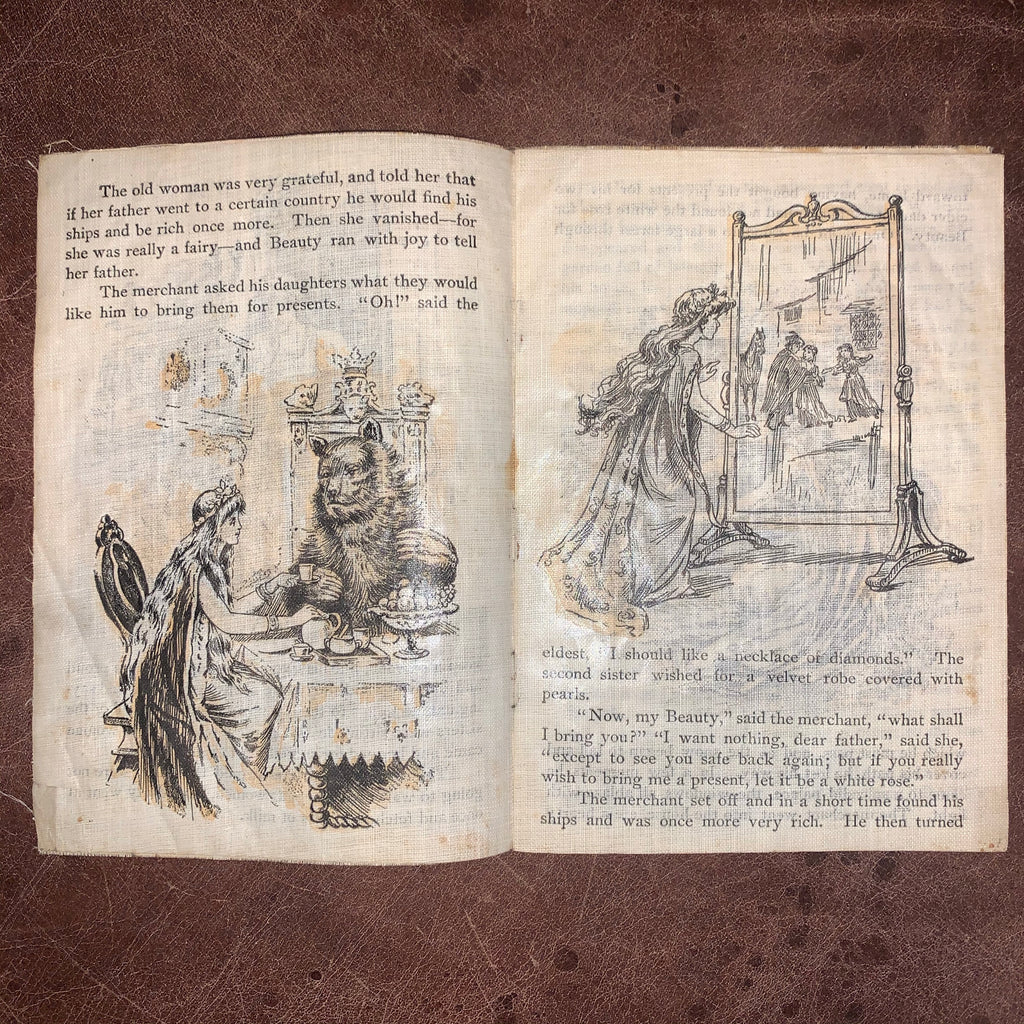 The old woman was very grateful, and told her that
if her father went to a certain country he would find his
ships and be rich once more. Then she vanished—for
she was really a fairy—and Beauty ran with joy to tell
her father.
The merchant asked his daughters what they would
like him to bring them for presents. "Oh!" said the
eldest, "I should like a necklace of diamonds." The
second sister wished for a velvet robe covered with
pearls.
"Now, my Beauty," said the merchant, "what shall
I bring you?" "I want nothing, dear father," said she,
"except to see you safe back again; but if you really
wish to bring me a present, let it be a white rose."
The merchant set off and in a short time found his
ships and was once more very rich. He then turned